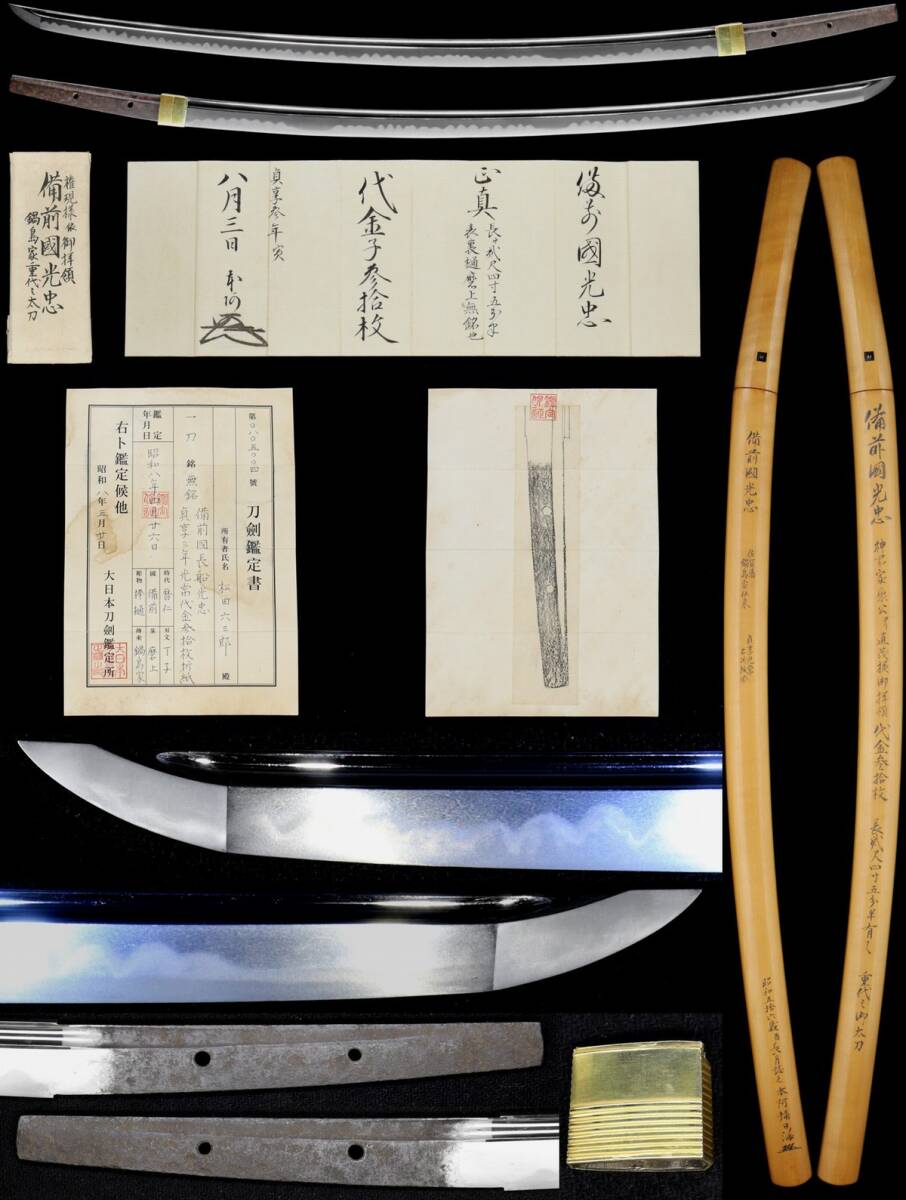 權現様依御拝領
備前國光忠
鍋島家重代之太刀
備前國光忠
正真 長サ貳尺四寸五分半
表裏樋磨上無銘也
代金子参拾枚
貞享参年寅
八月三日 本阿
第〇八〇五〇〇四號
刀劍鑑定書
所有者氏名 松田六三郎 殿
一 刀 銘 無銘
備前國長船光忠
貞享三年光常代金参拾枚折紙
鑑定年月日 昭和八年四月廿六日
時代 暦仁
刃文 丁子
國 備前
莖 磨上
彫物 棒樋
傳來 鍋島家
右ト鑑定候他
昭和八年五月廿日
大日本刀劍鑑定所
備前國光忠
佐賀藩
鍋島家伝来
備前國光忠
神君家康公ヨリ直茂横御拝領 代金参拾枚
長貳尺四寸五分半有之
重代之御太刀